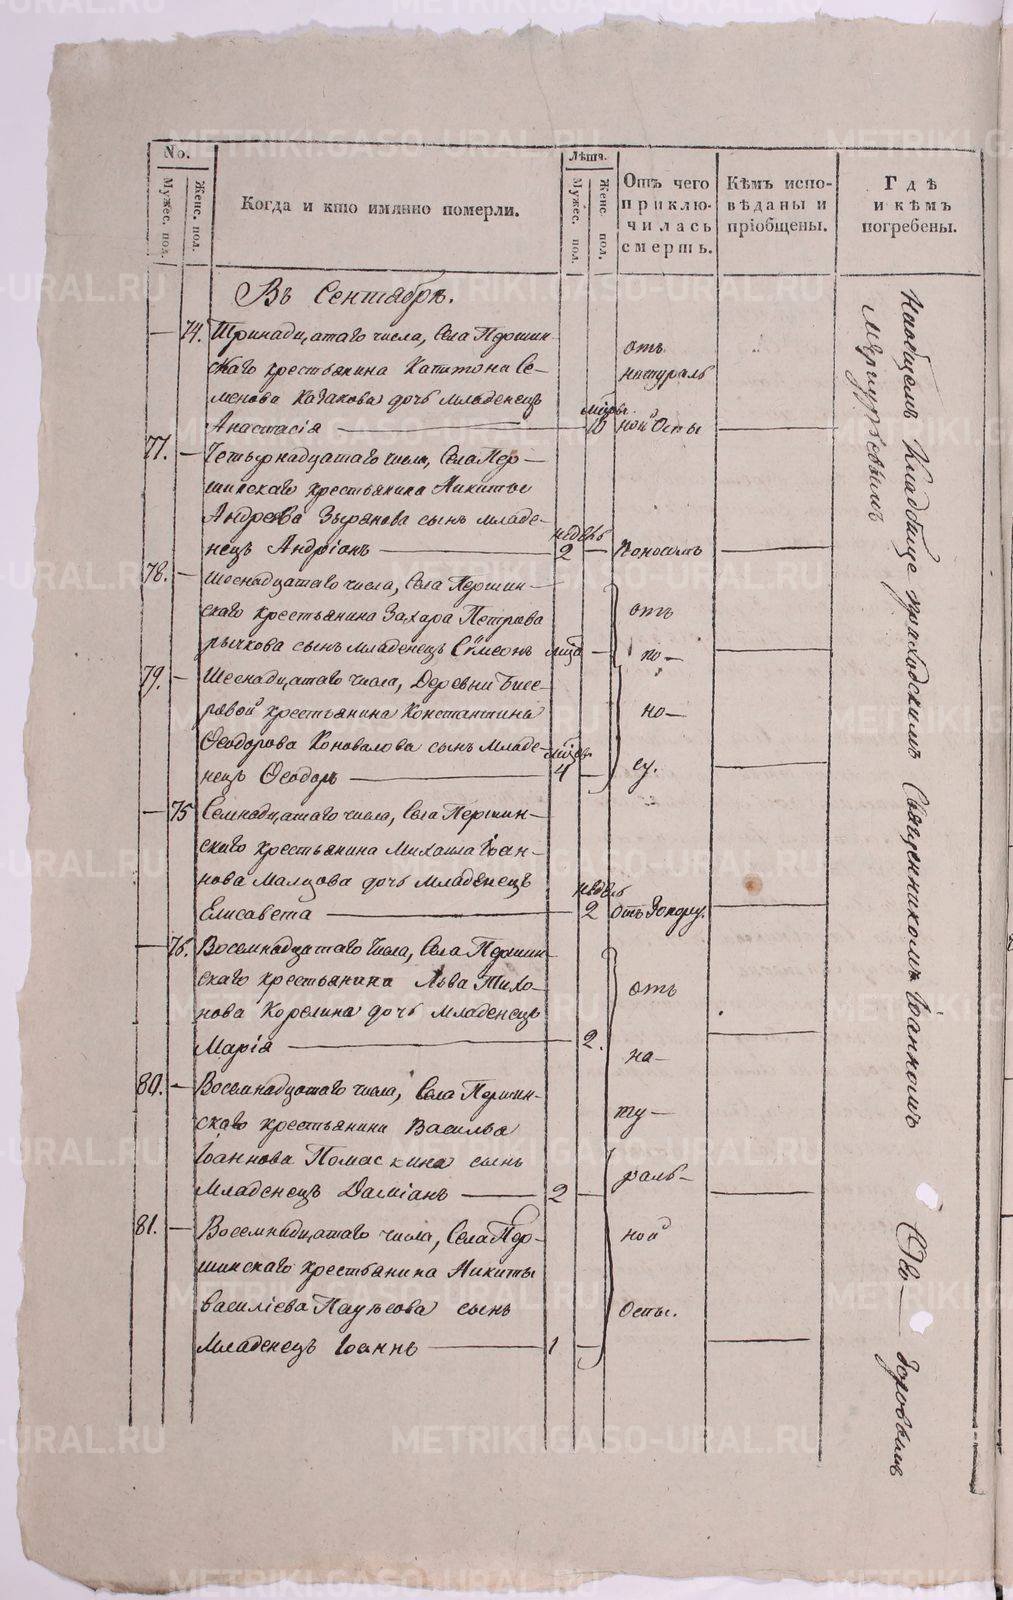 No.
Мужес. пол.
Женс. пол.
Когда и кто имянно померли.
Лѣта.
Мужес. пол.
Женс. пол.
Отъ чего
приклю-
чилась
смерть.
Кѣмъ испо-
вѣданы и
пріобщены.
Гдѣ
и кѣмъ
погребены.
Въ Сентябрѣ.
— 74. Тринадцатаго числа, Села Першин-
скаго крестьянина Капитона Се-
менова Казакова дочь младенецъ
Анастасія — 10
отъ
натураль
ной Оспы
77. — Четырнадцатаго числа, Села Пер-
шинскаго крестьянина Никиты
Андреева Зырянова сынъ младе-
нецъ Андріанъ — недель 2 — Поносомъ
78. — Шеснадцатаго числа, Села Першин-
скаго крестьянина Захара Петрова
рычкова сынъ младенецъ Сѵмеонъ
79. — Шеснадцатаго числа, Деревни
крестьянина Константина
Ѳеодорова Коновалова сынъ младе-
нецъ Ѳеодоръ — 4 —
отъ
по-
но-
су.
— 75 Семнадцатаго числа, Села Першин-
скаго крестьянина Михаила Іоан-
нова Малцова дочь младенецъ
Елисавета — недель 2 отъ Запору.
— 76. Восемнадцатаго числа, Села Першин-
скаго крестьянина Льва Тихо-
нова Корелина дочь младенецъ
Марія — 2.
80. — Восемнадцатаго числа, Села Першин-
скаго крестьянина Василья
Іоаннова Помаскина сынъ
младенецъ Даміанъ — 2 —
81. — Восемнадцатаго числа, Села Пер-
шинскаго крестьянина Никиты
василіева Пауесова сынъ
младенецъ Іоаннъ — 1 —
отъ
на-
ту-
раль-
ной
оспы.
Наобщемъ Кладбище приходскимъ Священникомъ Іоанномъ
METRIKI.GASO-URAL.RU